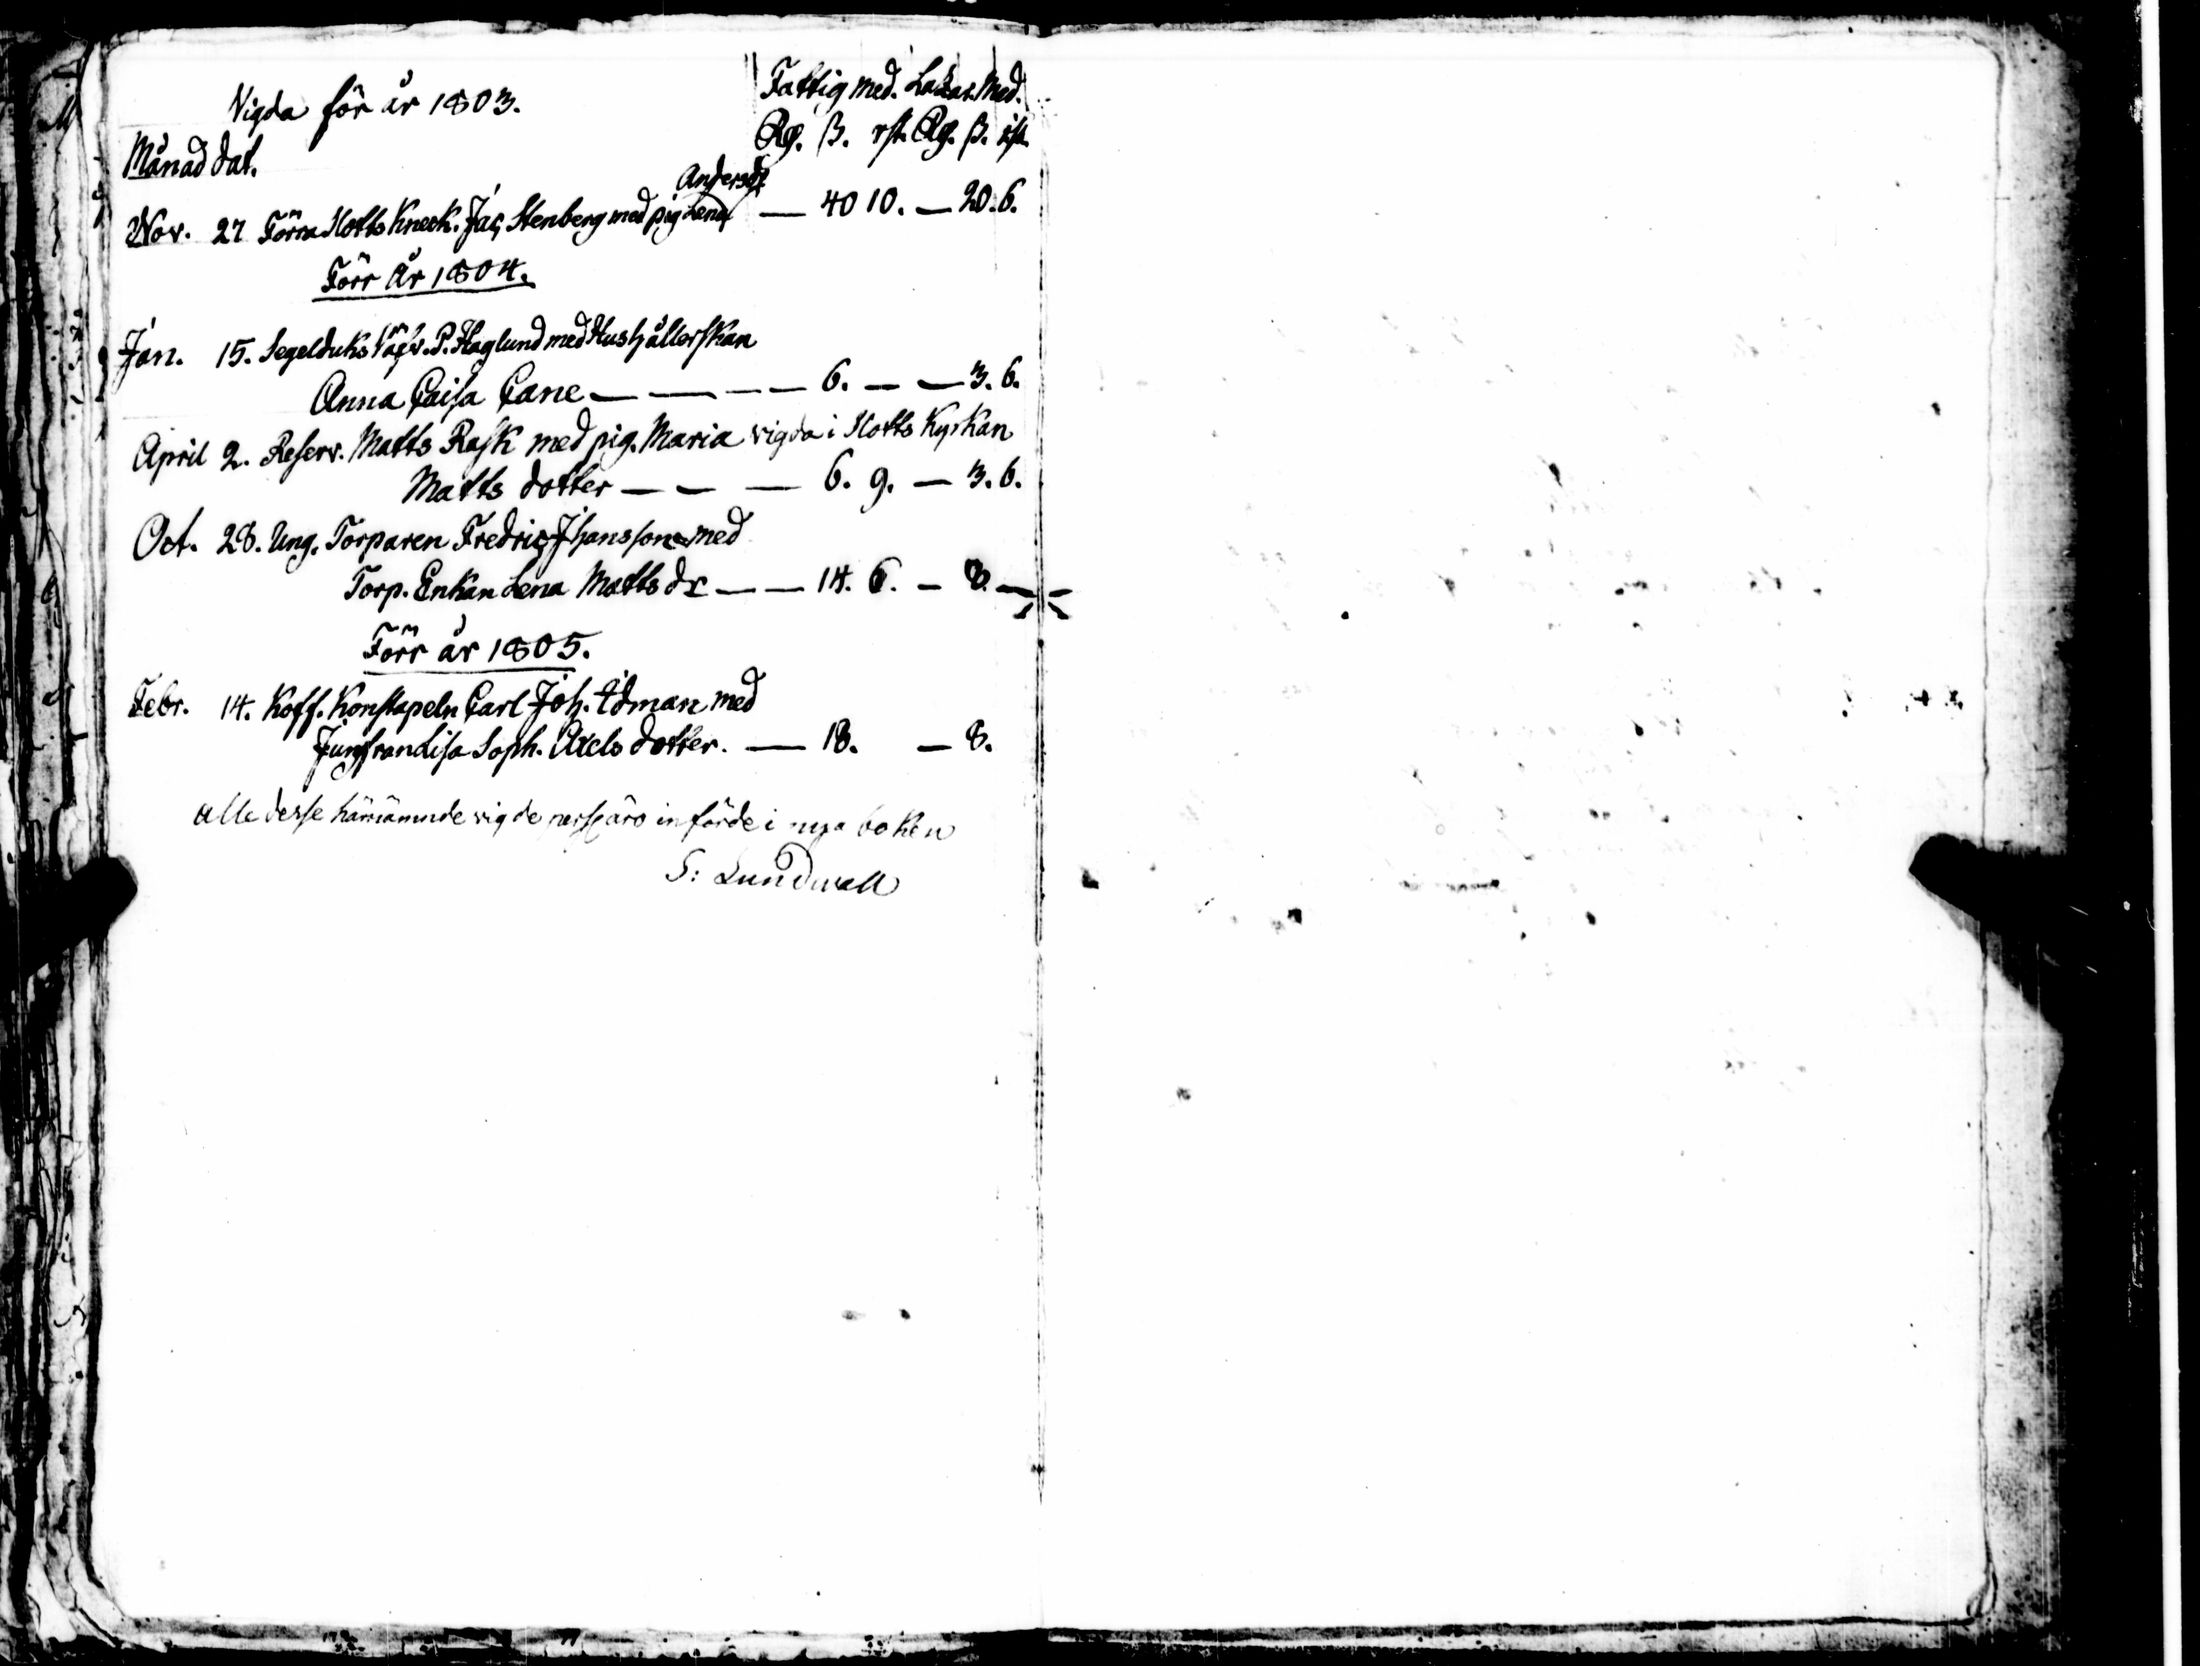 Vigda för år 1803.
Fattig med. Lazar. Med.
Månad dat.
Rg. ß. rst. Rg. ß. rst.
Andersdr
Nov. 27 Förra Slotts Kneck. Jac, Stenberg med pig Lena — 40 10. — 20. 6.
Förr År 1804.
Jan. 15. Segelduks Väfv. P. Haglund med Hushållerskan
Anna Caisa Cane — — — — 6. — — 3. 6.
April 2. Reserv. Matts Rask med pig. Maria vigda i Slotts Kyrkan
Matts dotter — — — 6. 9. — 3. 6.
Oct. 28. Ung. Torparen Fredric Jhansson med
Torp. Enkan Lena Matts dr — — 14. 6. — 8. —
Förr år 1805.
Febr. 14. Koff. Konstapeln Carl Joh. Ådman med
Jungfrau Lisa Soph. Axels dotter. — 18. — 8.
alle desse härnämnde vigde pers: äro införde i nya boken
S: Lundwall